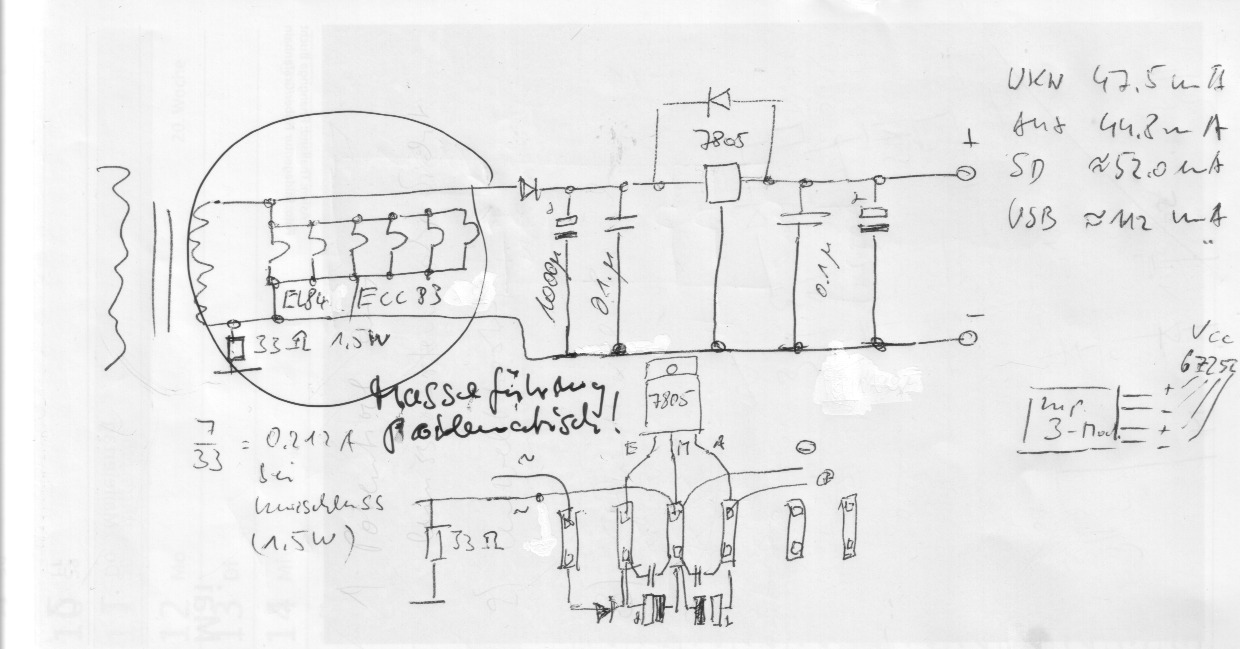 UKW 47.5 mA
Aux 44.8 mA
SD ≈52.0 mA
USB ≈112 mA
7805
+
1000µ
0.1µ
0.1µ
EL84 ECC83
33Ω 1,5W
−
Masseführung
problematisch!
7805
E M A
7/33 = 0.212 A
bei
Kurzschluss
(1,5W)
~
~
33Ω
Vcc
mp
3-Mod.
+
−
+
−